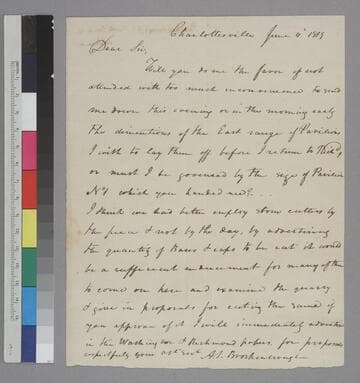 Charlottesville June 4th 1819
Dear Sir,
Will you do me the favor if not
attended with too much inconvenience to send
me down this evening or in the morning early
the dimentions of the East range of Pavilions
I wish to lay them off before I return to Richd,
or must I be governed by the size of Pavilion
No 1 which you handed me? ...
I think we had better employ stone cutters by
the piece & not by the day, by advertising
the quantity of Bases & caps to be cut it would
be a sufficient inducement for many of them
to come on here and examine the quarry
& give in proposals for cuting the same if
you approve of it I will immediately advertise
in the Washington & Richmond papers for proposals
respectfully your obt Servt A. S. Brockenbrough